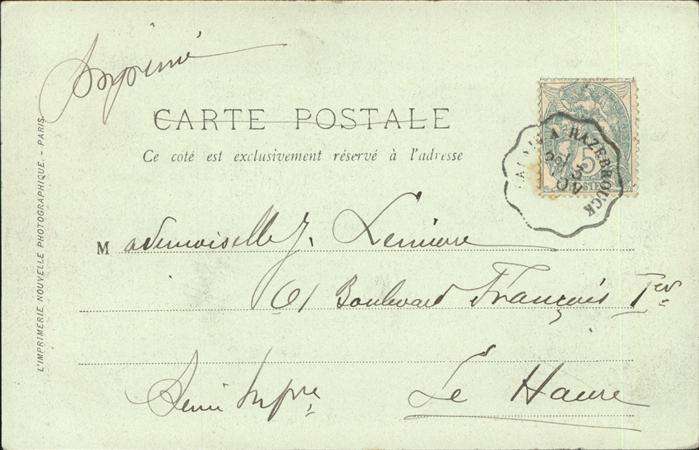 Imprimé
CARTE POSTALE
Ce coté est exclusivement réservé à l'adresse
CALAIS A HAZEBROUCK
5
POSTES
Mademoiselle J. Lemiere
61 Boulevard François Ier
Seine Infre
Le Havre
L'IMPRIMERIE NOUVELLE PHOTOGRAPHIQUE - PARIS